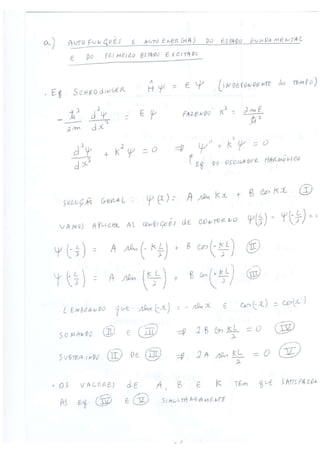 a.) AUTOFUNÇÕES E AUTOENERGIAS DO ESTADO FUNDAMENTAL
E DO PRIMEIRO ESTADO EXCITADO
• EQ SCHRODINGER Ĥψ = Eψ (INDEPENDENTE DO TEMPO)
-ħ²/2m d²ψ/dx² = Eψ FAZENDO K² = 2mE/ħ²
d²ψ/dx² + K²ψ = 0 ⇒ ψ'' + K²ψ = 0
EQ. DO OSCILADOR HARMÔNICO
SOLUÇÃO GERAL: ψ(x) = A sen Kx + B cos Kx (I)
VAMOS APLICAR AS CONDIÇÕES DE CONTORNO ψ(L/2) = ψ(-L/2) =
ψ(-L/2) = A sen(-KL/2) + B cos(-KL/2) (II)
ψ(L/2) = A sen(KL/2) + B cos(KL/2) (III)
LEMBRANDO que sen(-x) = -sen x E cos(-x) = cos(x)
SOMANDO (II) E (III) ⇒ 2B cos KL/2 = 0 (IV)
SUBTRAINDO (II) DE (III) ⇒ 2A sen KL/2 = 0 (V)
• OS VALORES de A, B E K TEM QUE SATISFAZER
AS EQ. (IV) E (V) SIMULTANEAMENTE